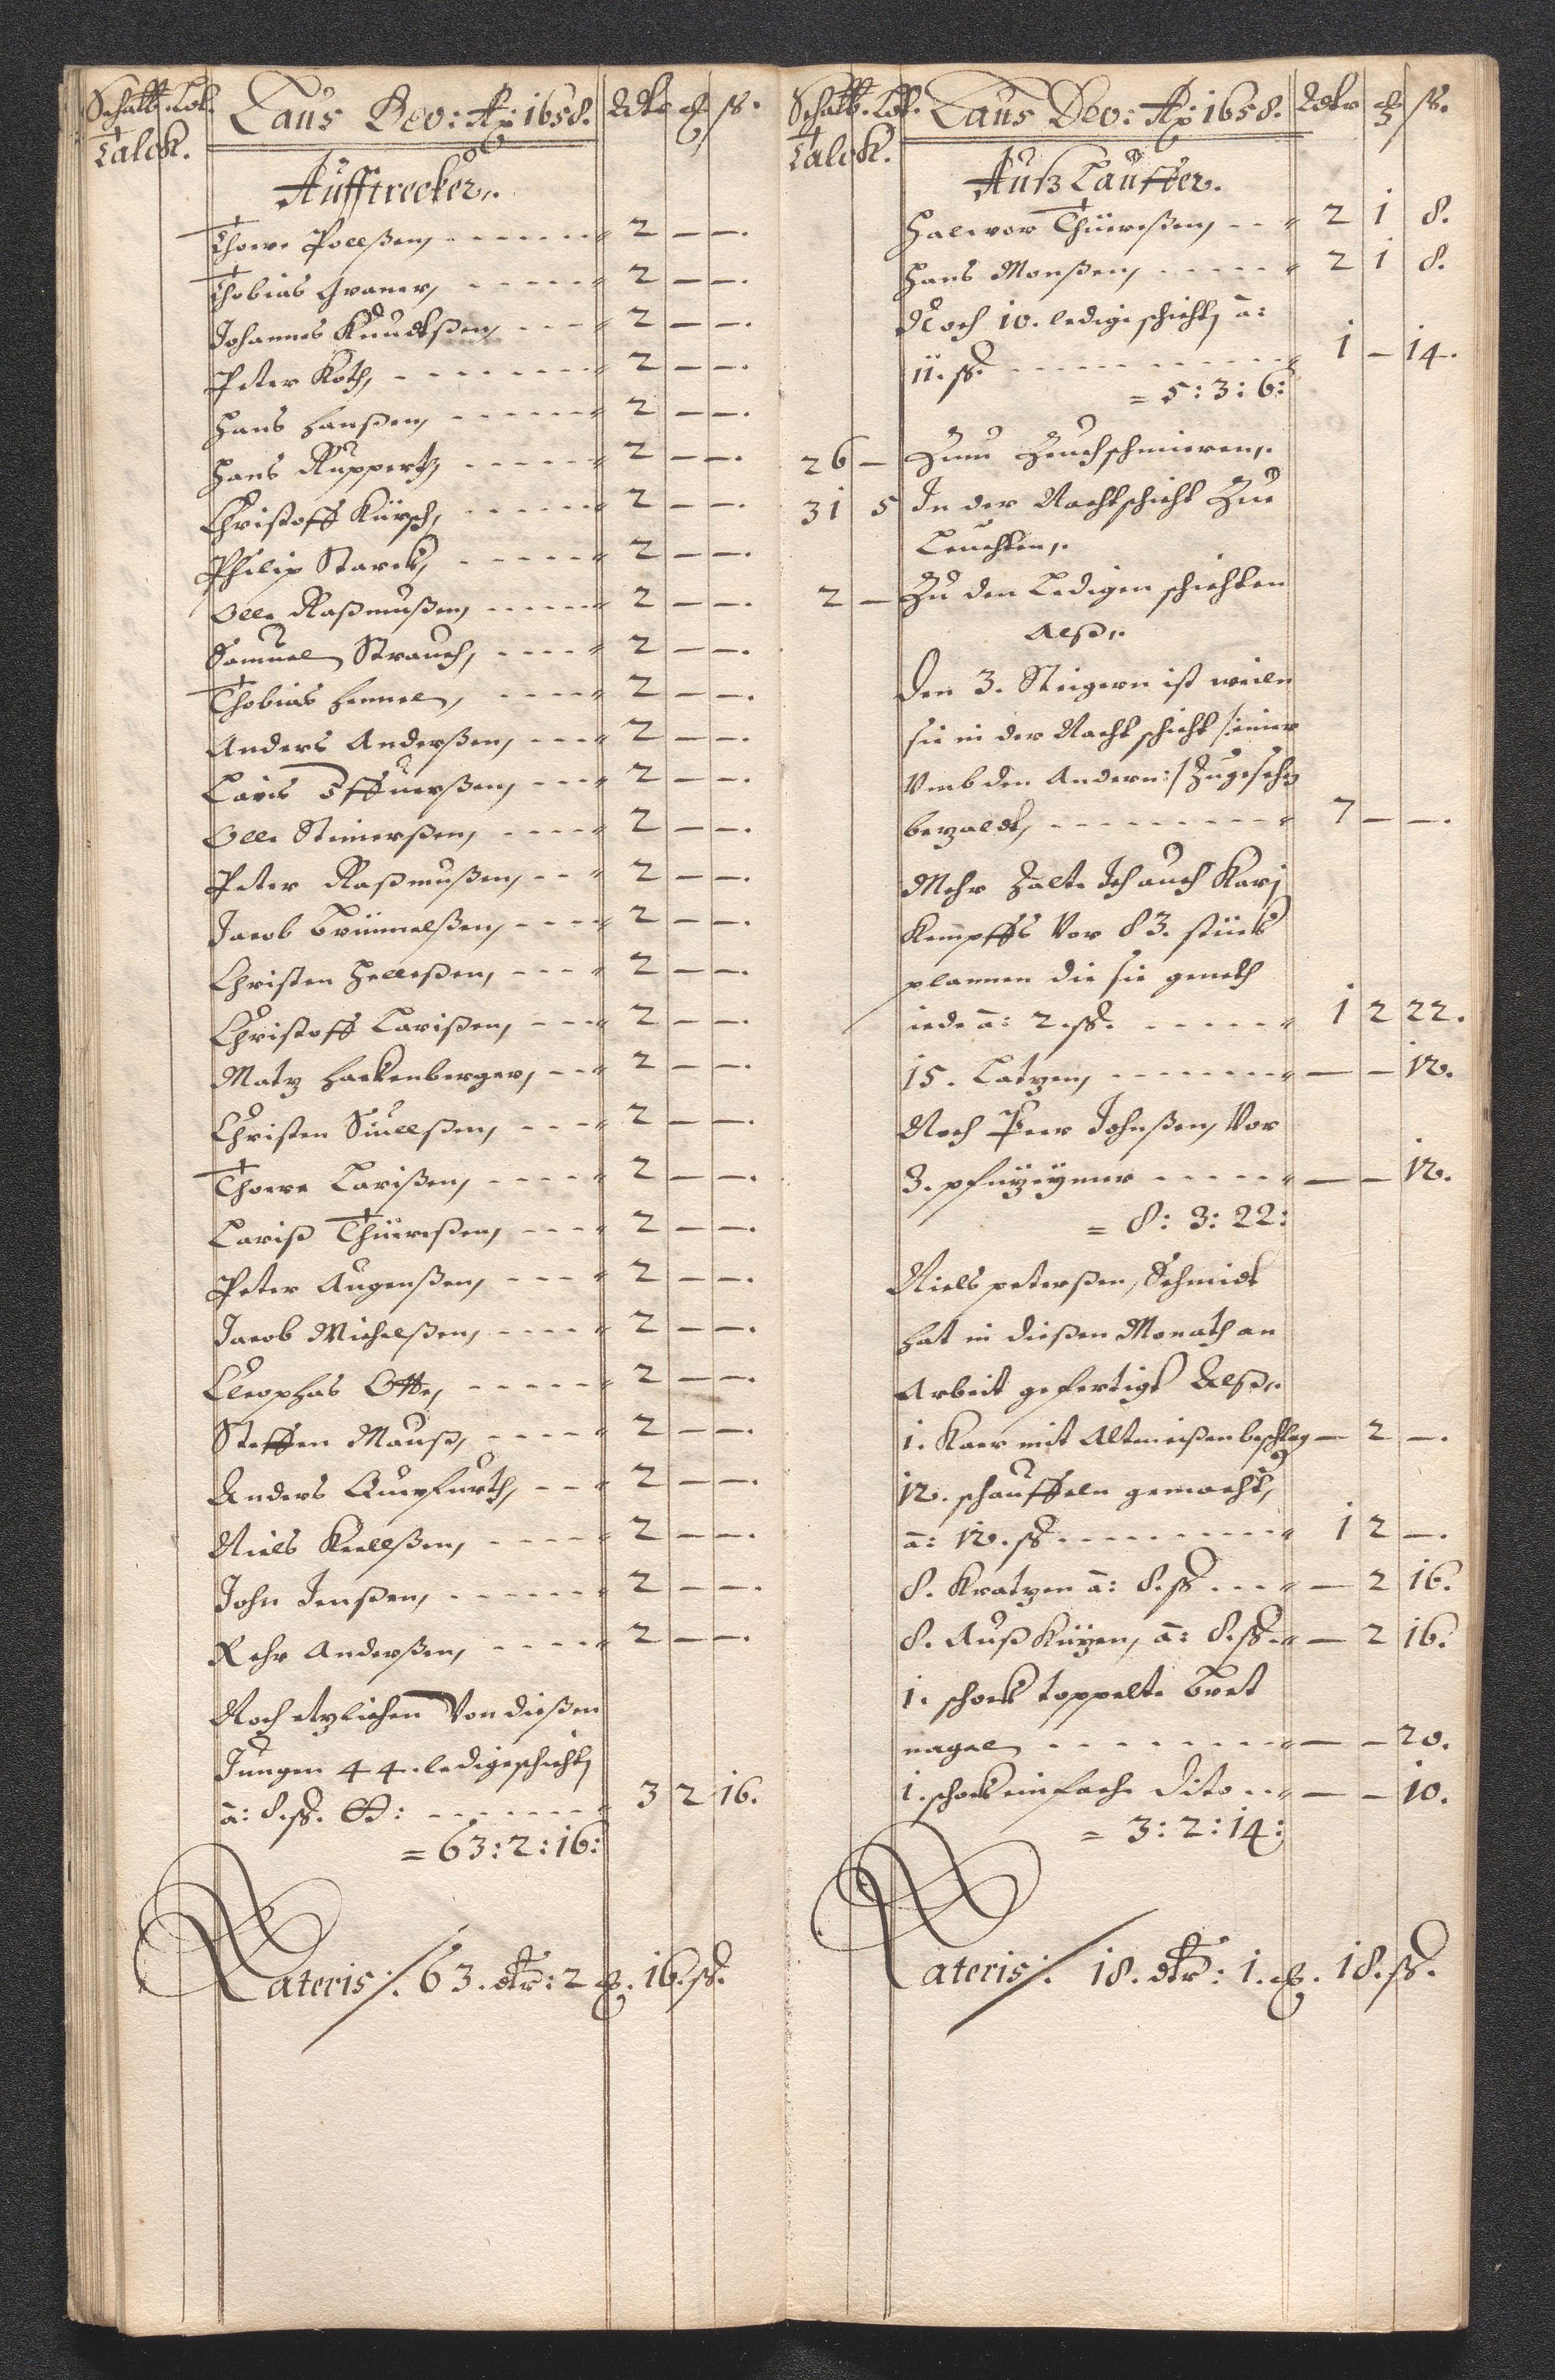 Schalb. Lod.
Talck.
Laus Deo: Aō: 1658. Rdlr ↊ ß.
Aufftrecker,.
Thore Pollßen, 2 — —.
Thobias Graner, 2 — —.
Johannes Knudtßen, 2 — —.
Peter Koth, 2 — —.
Hans Hanßen, 2 — —.
Hans Ruppertz 2 — —.
Christoff Kürsch, 2 — —.
Philip Starck, 2 — —.
Olle Raßmußen, 2 — —.
Samuel Strauch, 2 — —.
Thobias Hemmel, 2 — —.
Anders Anderßen, 2 — —.
Lavis Öffuerßen, 2 — —.
Olle Steinerßen, 2 — —.
Peter Raßmußen, 2 — —.
Jacob Brümmelßen, 2 — —.
Christen Helleßen, 2 — —.
Christoff Larißen, 2 — —.
Matz Hackenberger, 2 — —.
Christen Siuellßen, 2 — —.
Thore Larißen, 2 — —.
Lariß Thüreßen, 2 — —.
Peter Augenßen, 2 — —.
Jacob Michelßen, 2 — —.
Cleophas Otte, 2 — —.
Steffen Mauß, 2 — —.
Anders Querfurth, 2 — —.
Niels Kiellßen, 2 — —.
John Jenßen, 2 — —.
Rehr Anderßen, 2 — —.
Noch etzlichen Von dießen
Jungen 44. ledige schicht,
ā: 8. ß. 3 2 16.
= 63: 2: 16:
Lateris ./. 63. dlr: 2 ↊. 16. ß.
Schalb. Lod.
Talck.
Laus Deo: Aō: 1658. Rdlr ↊ ß.
Außlauffer.
Halvor Thüreßen, 2 1 8.
Hans Monßen, 2 1 8.
Noch 10. ledige schicht, ā:
11. ß. 1 — 14.
= 5: 3: 6:
26 — Zum Zeuchschmieren,.
31 5 In der Nachtschicht Zue
Leuchten,.
2 — Zu den Ledigen schichten
Alß,.
Den 3. Steigern ist weiln
sie in der Nacht schicht /:einer
Vmb den Andern:/ Zugesehn
bezaldt, 7 — —.
Mehr Zalte Ich auch Kari
Kempffs Vor 83. stück
plannen die sie geneth
iede ā: 2. ß. 1 2 22.
15. Latzen, — — 12.
Noch Peer Johnßen, Vor
3. pfützeymer — — 12.
= 8: 3: 22:
Niels peterßen, Schmidt
hat in dießen Monath an
Arbeit gefertigt Alß,.
1. Kaer mit Altemeißen beschlag — 2 —.
12. schauffeln gemacht,
ā: 12. ß 1 2 —.
8. Kratzen ā: 8. ß — 2 16.
8. Auß Küzen, ā: 8. ß — 2 16.
1. schock toppelte Bret
nagel — — 20.
1. schock einfache dito — — 10.
= 3: 2: 14:
Lateris ./. 18. dlr: 1. ↊. 18. ß.